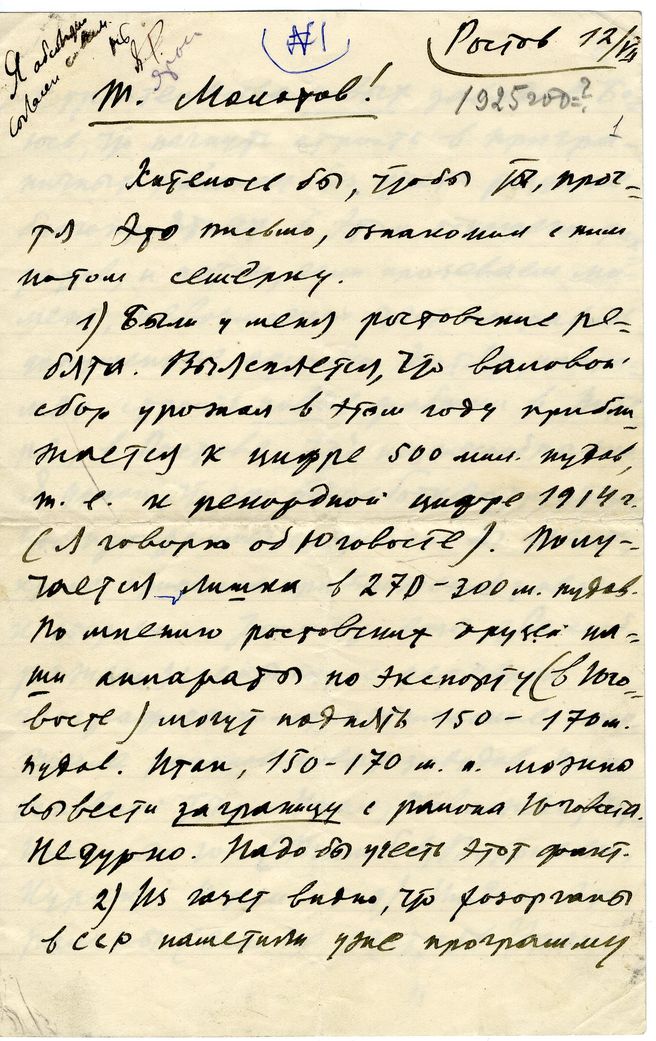 Я абсолютно
согласен с вами.
№1
Ростов 12/VII
1925 год=?
1
Т. Молотов!
Хотелось бы, чтобы ты, проч-
тя это письмо, ознакомил с ним
потом семёрку.
1) Были у меня ростовские ре-
бята. Выясняется, что валовой
сбор урожая в этом году прибли-
жается к цифре 500 мил. пудов,
т. е. к рекордной цифре 1914 г.
(я говорю об Юговосте). Полу-
чается лишка в 270-300 м. пудов.
По мнению ростовских друзей на-
ши аппараты по экспорту (в Юго-
восте) могут поднять 150-170 м.
пудов. Итак, 150-170 м. п. можно
вывезти заграницу с района Юговоста.
Недурно. Надо бы учесть этот факт.
2) Из газет видно, что хозорганы
в ССР наметили уже программу